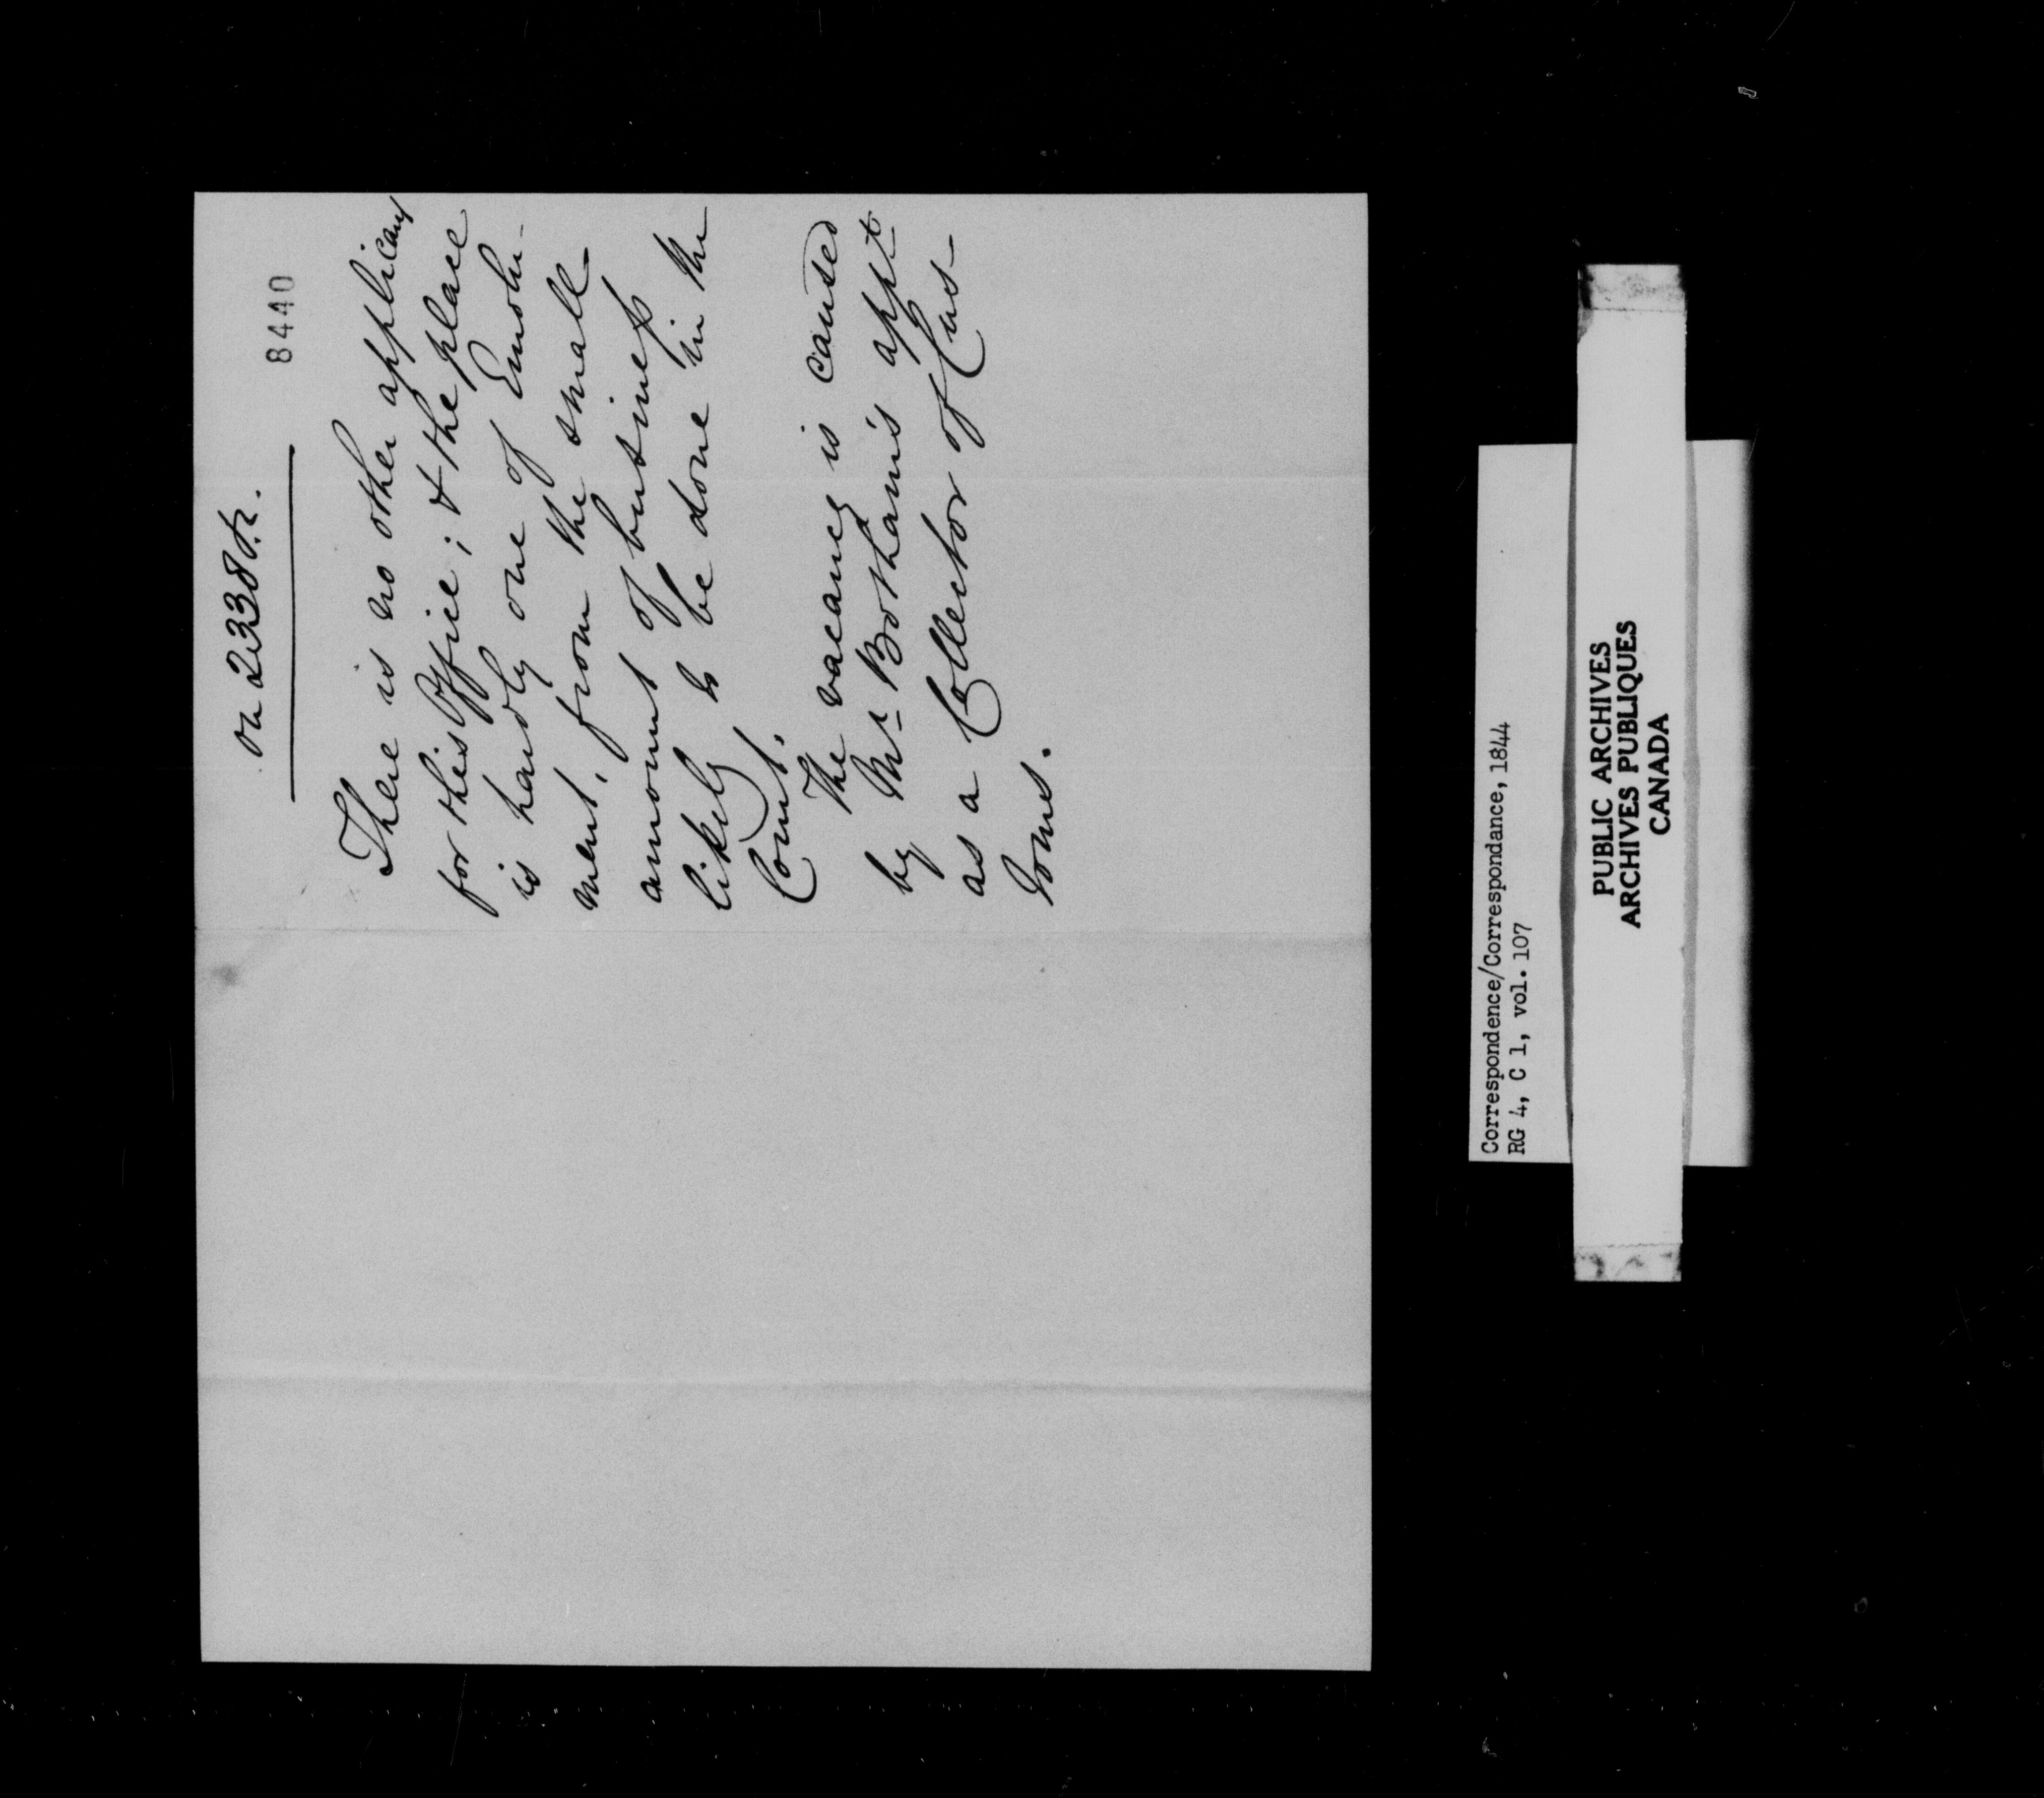 on 2338 Sr.
8440
There is no other applicant
for this Office; & the place
is hardly one of Emolu-
ment, from the small
amount of business
likely to be done in the
Court.
The vacancy is caused
by Mr Botham's appt
as a Collector of Cus-
toms.
Correspondence/Correspondance, 1844
RG 4, C 1, vol. 107
PUBLIC ARCHIVES
ARCHIVES PUBLIQUES
CANADA